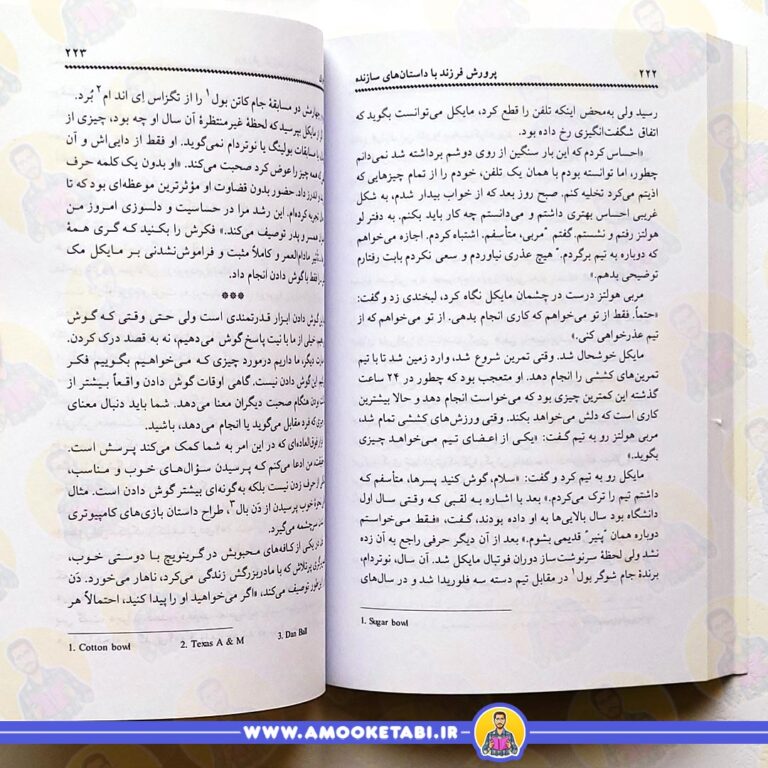 ۲۲۲
پرورش فرزند با داستان‌های سازنده
رسید ولی به‌محض اینکه تلفن را قطع کرد، مایکل می‌توانست بگوید که
اتفاق شگفت‌انگیزی رخ داده بود.
«احساس کردم که این بار سنگین از روی دوشم برداشته شد نمی‌دانم
چطور، اما توانسته بودم با همان یک تلفن، خودم را از تمام چیزهایی که
اذیتم می‌کرد تخلیه کنم. صبح روز بعد که از خواب بیدار شدم، به شکل
غریبی احساس بهتری داشتم و می‌دانستم چه کار باید بکنم. به دفتر لو
هولتز رفتم و نشستم. گفتم "مربی، متأسفم. اشتباه کردم. اجازه می‌خواهم
که دوباره به تیم برگردم." هیچ عذری نیاوردم و سعی نکردم بابت رفتارم
توضیحی بدهم.»
مربی هولتز درست در چشمان مایکل نگاه کرد، لبخندی زد و گفت:
«حتماً. فقط از تو می‌خواهم که کاری انجام بدهی. از تو می‌خواهم که از
تیم عذرخواهی کنی.»
مایکل خوشحال شد. وقتی تمرین شروع شد، وارد زمین شد تا با تیم
تمرین‌های کششی را انجام دهد. او متعجب بود که چطور در ۲۴ ساعت
گذشته این کمترین چیزی بود که می‌خواست انجام دهد و حالا بیشترین
کاری است که دلش می‌خواهد بکند. وقتی ورزش‌های کششی تمام شد،
مربی هولتز رو به تیم گفت: «یکی از اعضای تیم می‌خواهد چیزی
بگوید.»
مایکل رو به تیم کرد و گفت: «سلام، گوش کنید پسرها، متأسفم که
داشتم تیم را ترک می‌کردم.» بعد با اشاره به لقبی که وقتی سال اول
دانشگاه بود سال بالایی‌ها به او داده بودند، گفت، «فقط می‌خواستم
دوباره همان "پنیر" قدیمی بشوم.» بعد از آن دیگر حرفی راجع به آن زده
نشد ولی لحظهٔ سرنوشت‌ساز دوران فوتبال مایکل شد. آن سال، نوتردام،
برندهٔ جام شوگر بول۱ در مقابل تیم دسته سه فلوریدا شد و در سال‌های
1. Sugar bowl
۲۲۳
چهارمش دو مسابقهٔ جام کاتن بول۱ را از تگزاس اِی اند اِم۲ بُرد.
از مایکل بپرسید که لحظهٔ غیرمنتظرهٔ آن سال او چه بود، چیزی از
مسابقات بولینگ یا نوتردام نمی‌گوید. او فقط از دایی‌اش و آن
همه چیز را عوض کرد صحبت می‌کند. «او بدون یک کلمه حرف
اندرز داد. حضور بدون قضاوت او مؤثرترین موعظه‌ای بود که تا
تجربه کرده‌ام. این رشد مرا در حساسیت و دلسوزی امروز من
همسر و پدر توصیف می‌کند.» فکرش را بکنید که گری همهٔ
تأثیر مادام‌العمر و کاملاً مثبت و فراموش‌نشدنی بر مایکل مک
را فقط با گوش دادن انجام داد.
***
گوش دادن ابزار قدرتمندی است ولی حتی وقتی که گوش
خیلی از ما با نیت پاسخ گوش می‌دهیم، نه به قصد درک کردن.
دیگر، ما داریم درمورد چیزی که می‌خواهیم بگوییم فکر
این گوش دادن نیست. گاهی اوقات گوش دادن واقعاً بیشتر از
هنگام صحبت دیگران معنا می‌دهد. شما باید دنبال معنای
که فرد مقابل می‌گوید یا انجام می‌دهد، باشید.
فوق‌العاده‌ای که در این امر به شما کمک می‌کند پرسش است.
من ادعا می‌کنم که پرسیدن سؤال‌های خوب و مناسب،
از حرف زدن نیست بلکه به‌گونه‌ای بیشتر گوش دادن است. مثال
خوب پرسیدن از دَن بال۳، طراح داستان بازی‌های کامپیوتری
سرچشمه می‌گیرد.
در یکی از کافه‌های محبوبش در گرینویچ با دوستی خوب،
پرتلاش که با مادربزرگش زندگی می‌کرد، ناهار می‌خورد. دَن
توصیف می‌کند، «اگر می‌خواهید او را پیدا کنید، احتمالاً هر
1. Cotton bowl 2. Texas A & M 3. Dan Ball
WWW.AMOOKETABI.IR